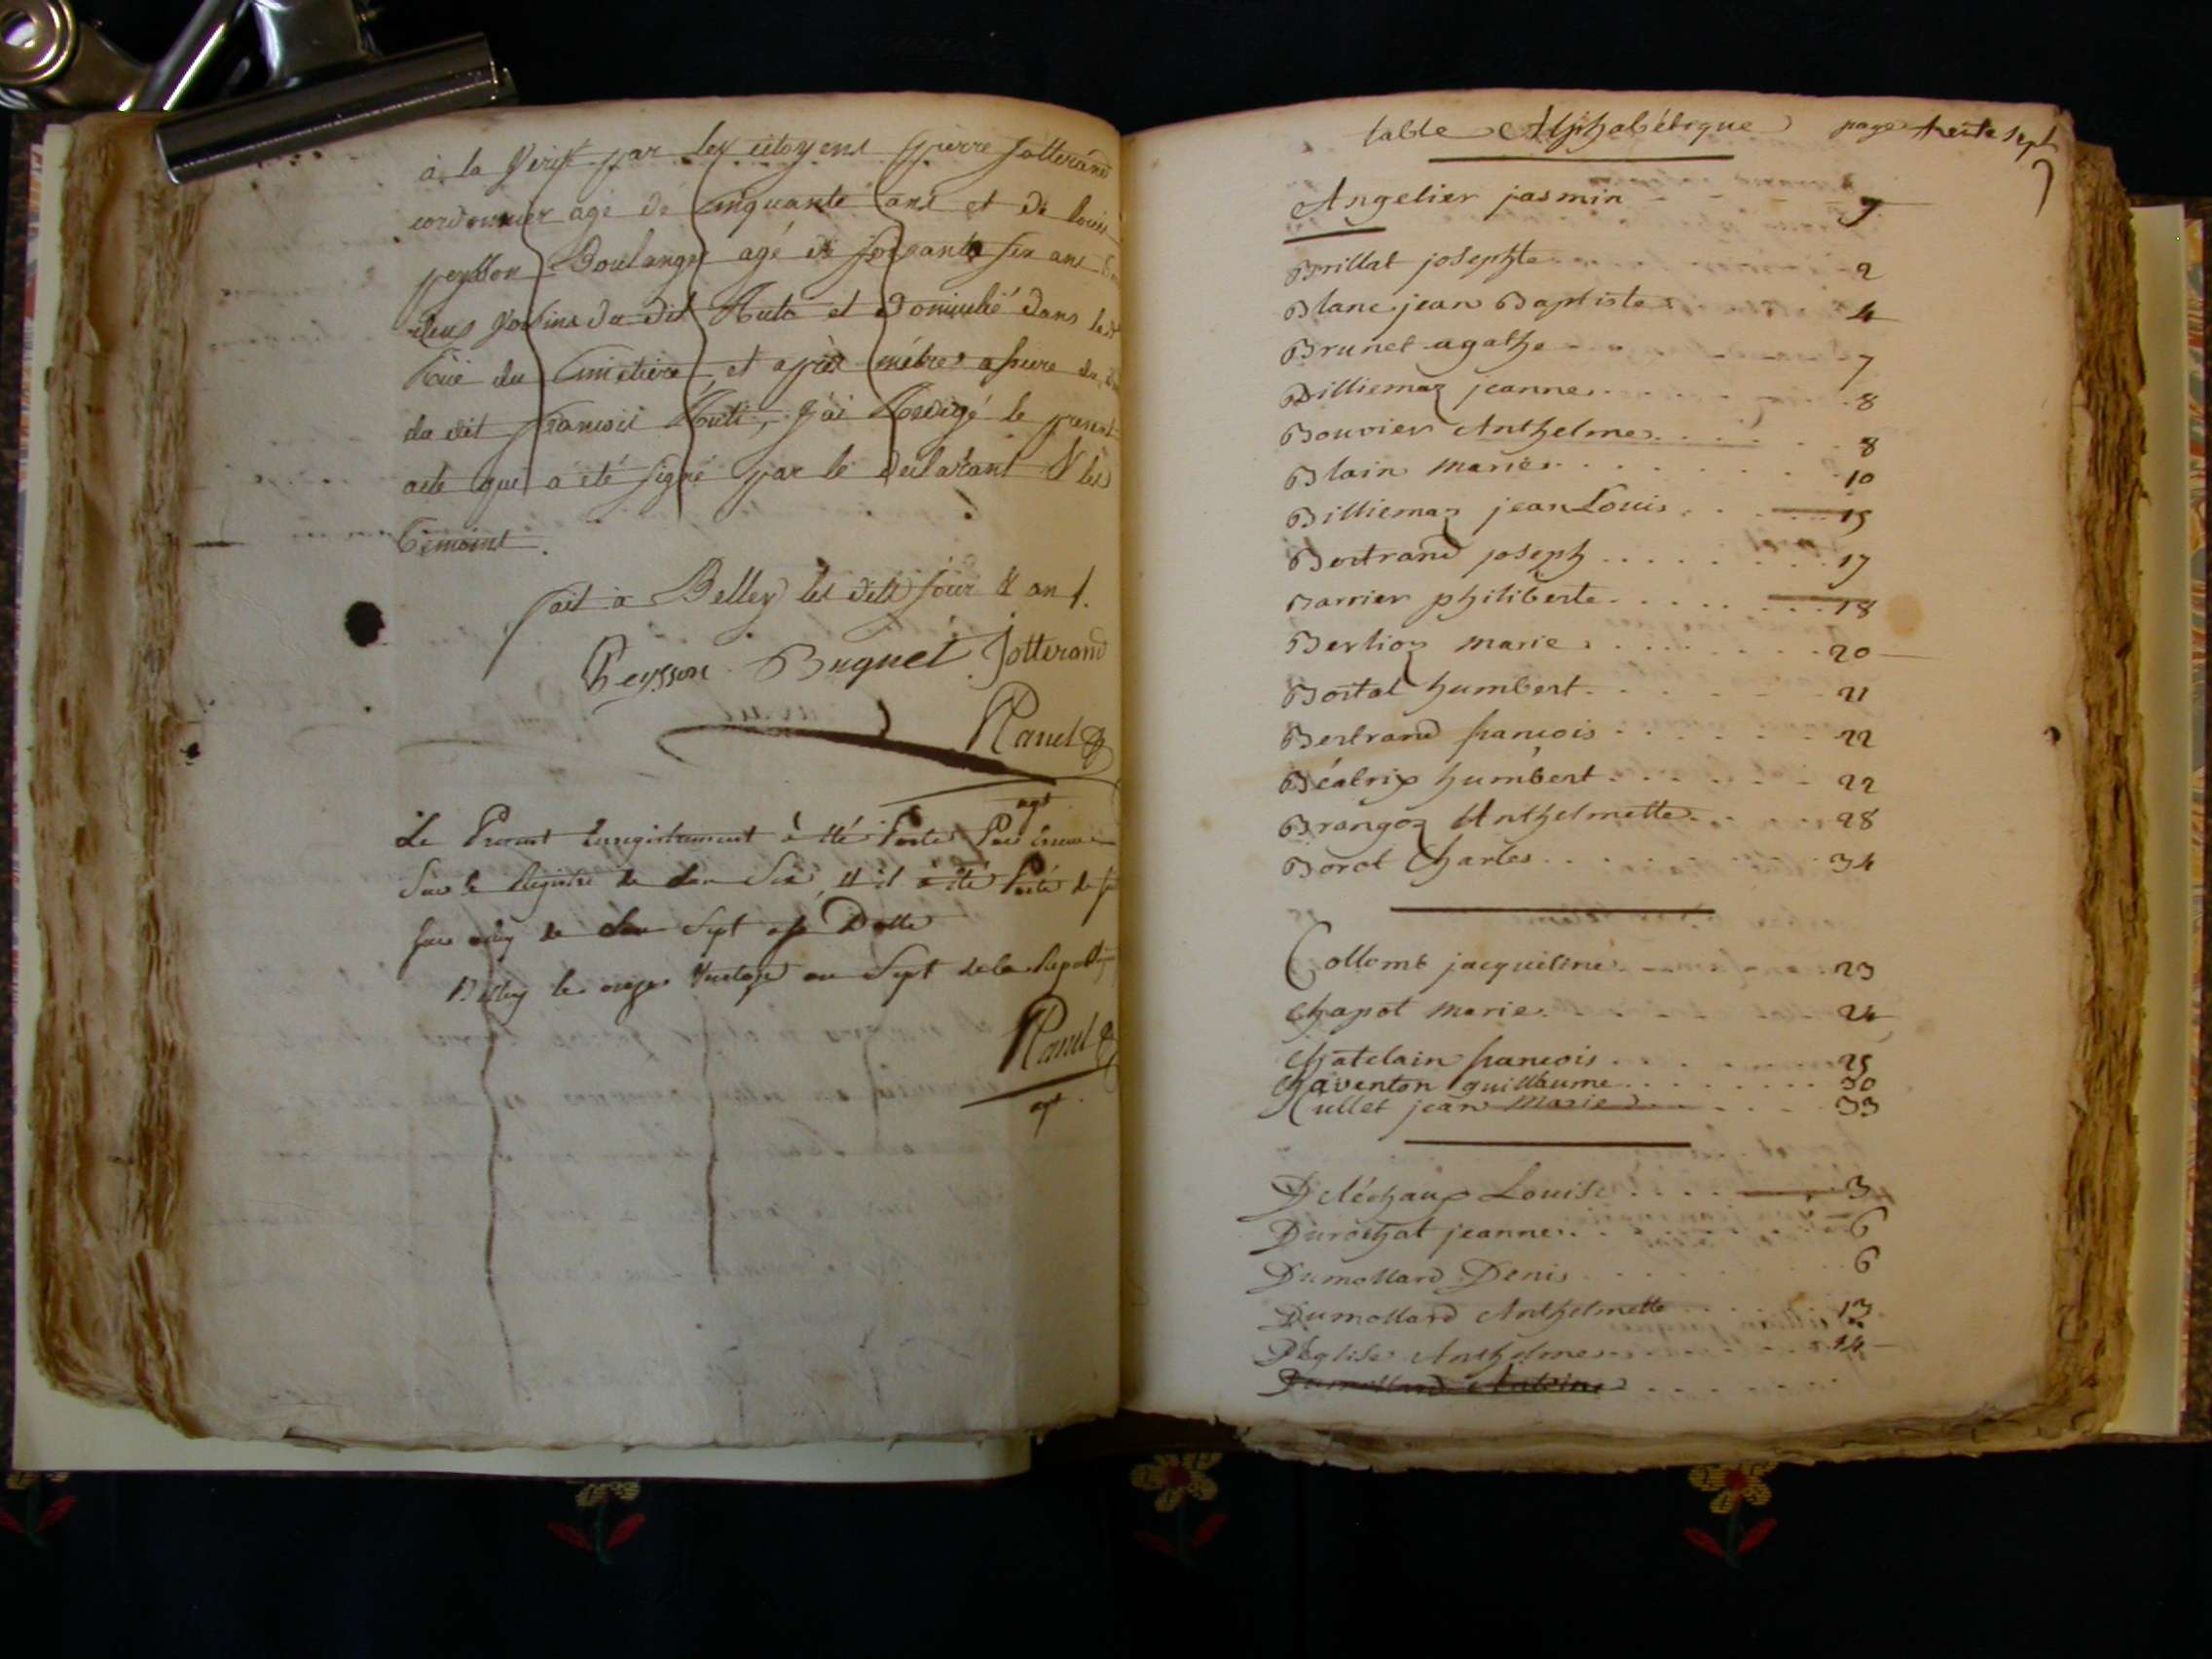 à la Verité par les citoyens pierre Jotterand
cordonnier agé de Cinquante ans et de louis
peysson Boulanger agé de soixante six ans
deux voisins du dit Auto et Domicilié dans la dt
Rüe du Cimetiere et après mêtre assure du
du dit francois j'ai Redigé le present
acte qui a été signé par le declarant & les
temoins.
fait à Belley les dits jour & an /.
Peysson Buguet Jotterand
Ravel
agt
Le Present Enregistrement à été Porté Par Erreur
Sur le Registre de l'an Six, et il à été Porté de
sur celuy de l'an Sept
Belley le onze an Sept de la Repub
Ravel
agt.
table Alphabétique page trente sept
Angelier jasmin 7
Brillat josephte 2
Blanc jean Baptiste 4
Brunet agathe 7
Billiemaz jeanne 8
Bouvier Anthelme 8
Blain marie 10
Billiemaz jean Louis 15
Bertrand joseph 17
Barrier philiberte 18
Berlioz marie 20
Bortal humbert 21
Bertrand francois 22
Béatrix humbert 22
Brangoz Anthelmette 28
Borot Charles 34
Collomb jacqueline 23
Chapot marie 24
Chatelain francois 25
Chaventon guillaume 30
Cullet jean marie 33
Deléchaux Louise 3
Durochat jeanne 6
Dumollard Denis 6
Dumollard Anthelmette 13
Déglise Anthelme 14
Dumollard Antoine